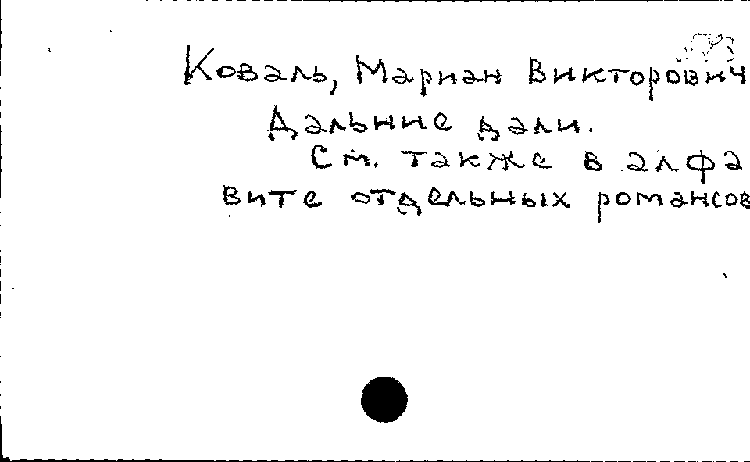 Коваль, Мариан Викторович
Дальние дали.
См. также в алфа
вите отдельных романсов